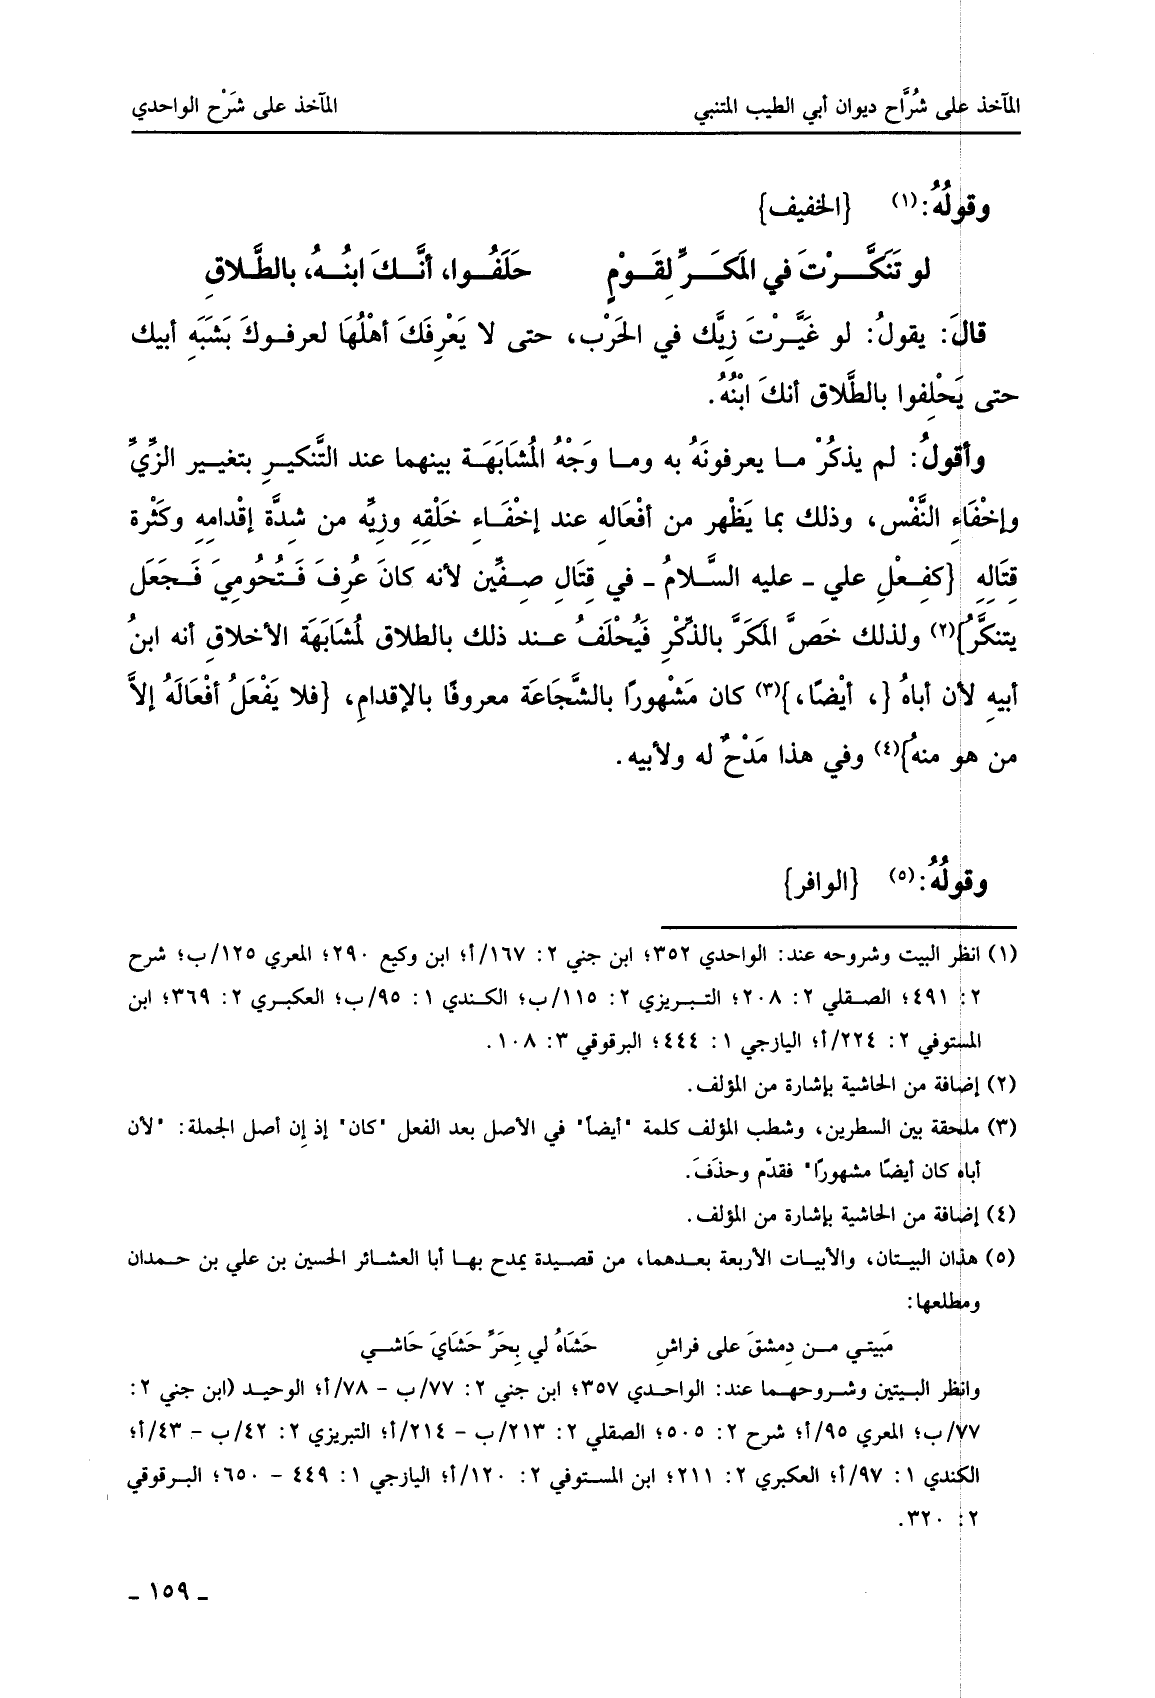 المآخذ على شُرَّاح ديوان أبي الطيب المتنبي المآخذ على شَرْح الواحدي
وقولُهُ:(١) {الخفيف}
لو تَنَكَّـرْتَ في المَكَـرِّ لِقَـوْمٍ حَلَفُـوا، أنَّـكَ ابنُـهُ، بالطَّـلاقِ
قالَ: يقولُ: لو غَيَّـرْتَ زِيَّك في الحَرْب، حتى لا يَعْرِفَكَ أهْلُهَا لعرفـوكَ بَشَبَهِ أبيك
حتى يَحْلِفوا بالطَّلاق أنكَ ابْنُهُ.
وأقولُ: لم يذكُرْ مـا يعرفونَهُ به ومـا وَجْهُ المُشَابَهَـة بينهما عند التَّنكيـرِ بتغييـر الزِّيِّ
وإخْفَاءِ النَّفْس، وذلك بما يَظْهر من أفْعَالهِ عند إخْفَـاءِ خَلْقهِ وزيِّه من شدَّة إقْدامهِ وكَثْرة
قِتَالهِ {كفِـعْلِ علي ـ عليه السَّلامُ ـ في قتَالِ صِـفِّين لأنه كانَ عُرِفَ فَـتُحُومِيَ فَـجَعَل
يتنكَّرُ}(٢) ولذلك خَصَّ المَكَرَّ بالذِّكْرِ فَيُحْلَفُ عـند ذلك بالطلاق لمُشَابَهَة الأخلاقِ أنه ابنُ
أبيهِ لأن أباهُ {، أيْضًا،}(٣) كان مَشْهورًا بالشَّجَاعَة معروفًا بالإقدامِ، {فلا يَفْعَلُ أفْعَالَهُ إلاَّ
من هو منهُ}(٤) وفي هذا مَدْحٌ له ولأبيه.
وقولُهُ:(٥) {الوافر}
(١) انظر البيت وشروحه عند: الواحدي ٣٥٢؛ ابن جني ٢: ١٦٧/أ؛ ابن وكيع ٢٩٠؛ المعري ١٢٥/ب؛ شرح
٢: ٤٩١؛ الصـقلي ٢: ٢٠٨؛ التـبـريزي ٢: ١١٥/ب؛ الكـندي ١: ٩٥/ب؛ العكبـري ٢: ٣٦٩؛ ابن
المستوفي ٢: ٢٢٤/أ؛ اليازجي ١: ٤٤٤؛ البرقوقي ٣: ١٠٨.
(٢) إضافة من الحاشية بإشارة من المؤلف.
(٣) ملحقة بين السطرين، وشطب المؤلف كلمة "أيضاً" في الأصل بعد الفعل "كان" إذ إن أصل الجملة: "لأن
أباه كان أيضًا مشهورًا" فقدّم وحذَفَ.
(٤) إضافة من الحاشية بإشارة من المؤلف.
(٥) هذان البيـتان، والأبيـات الأربعة بعـدهما، من قصـيدة يمدح بهـا أبا العشـائر الحسين بن علي بن حـمدان
ومطلعها:
مَبيتـي مـن دِمشقَ على فراشِ حَشَاهُ لي بِحَرِّ حَشَايَ حَاشـي
وانظر البـيتين وشـروحهـما عند: الواحـدي ٣٥٧؛ ابن جني ٢: ٧٧/ب - ٧٨/أ؛ الوحيـد (ابن جني ٢:
٧٧/ب؛ المعري ٩٥/أ؛ شرح ٢: ٥٠٥؛ الصقلي ٢: ٢١٣/ب - ٢١٤/أ؛ التبريزي ٢: ٤٢/ب - ٤٣/أ؛
الكندي ١: ٩٧/أ؛ العكبري ٢: ٢١١؛ ابن المستوفي ٢: ١٢٠/أ؛ اليازجي ١: ٤٤٩ - ٦٥٠؛ البـرقوقي
٢: ٣٢٠.
ـ ١٥٩ ـ